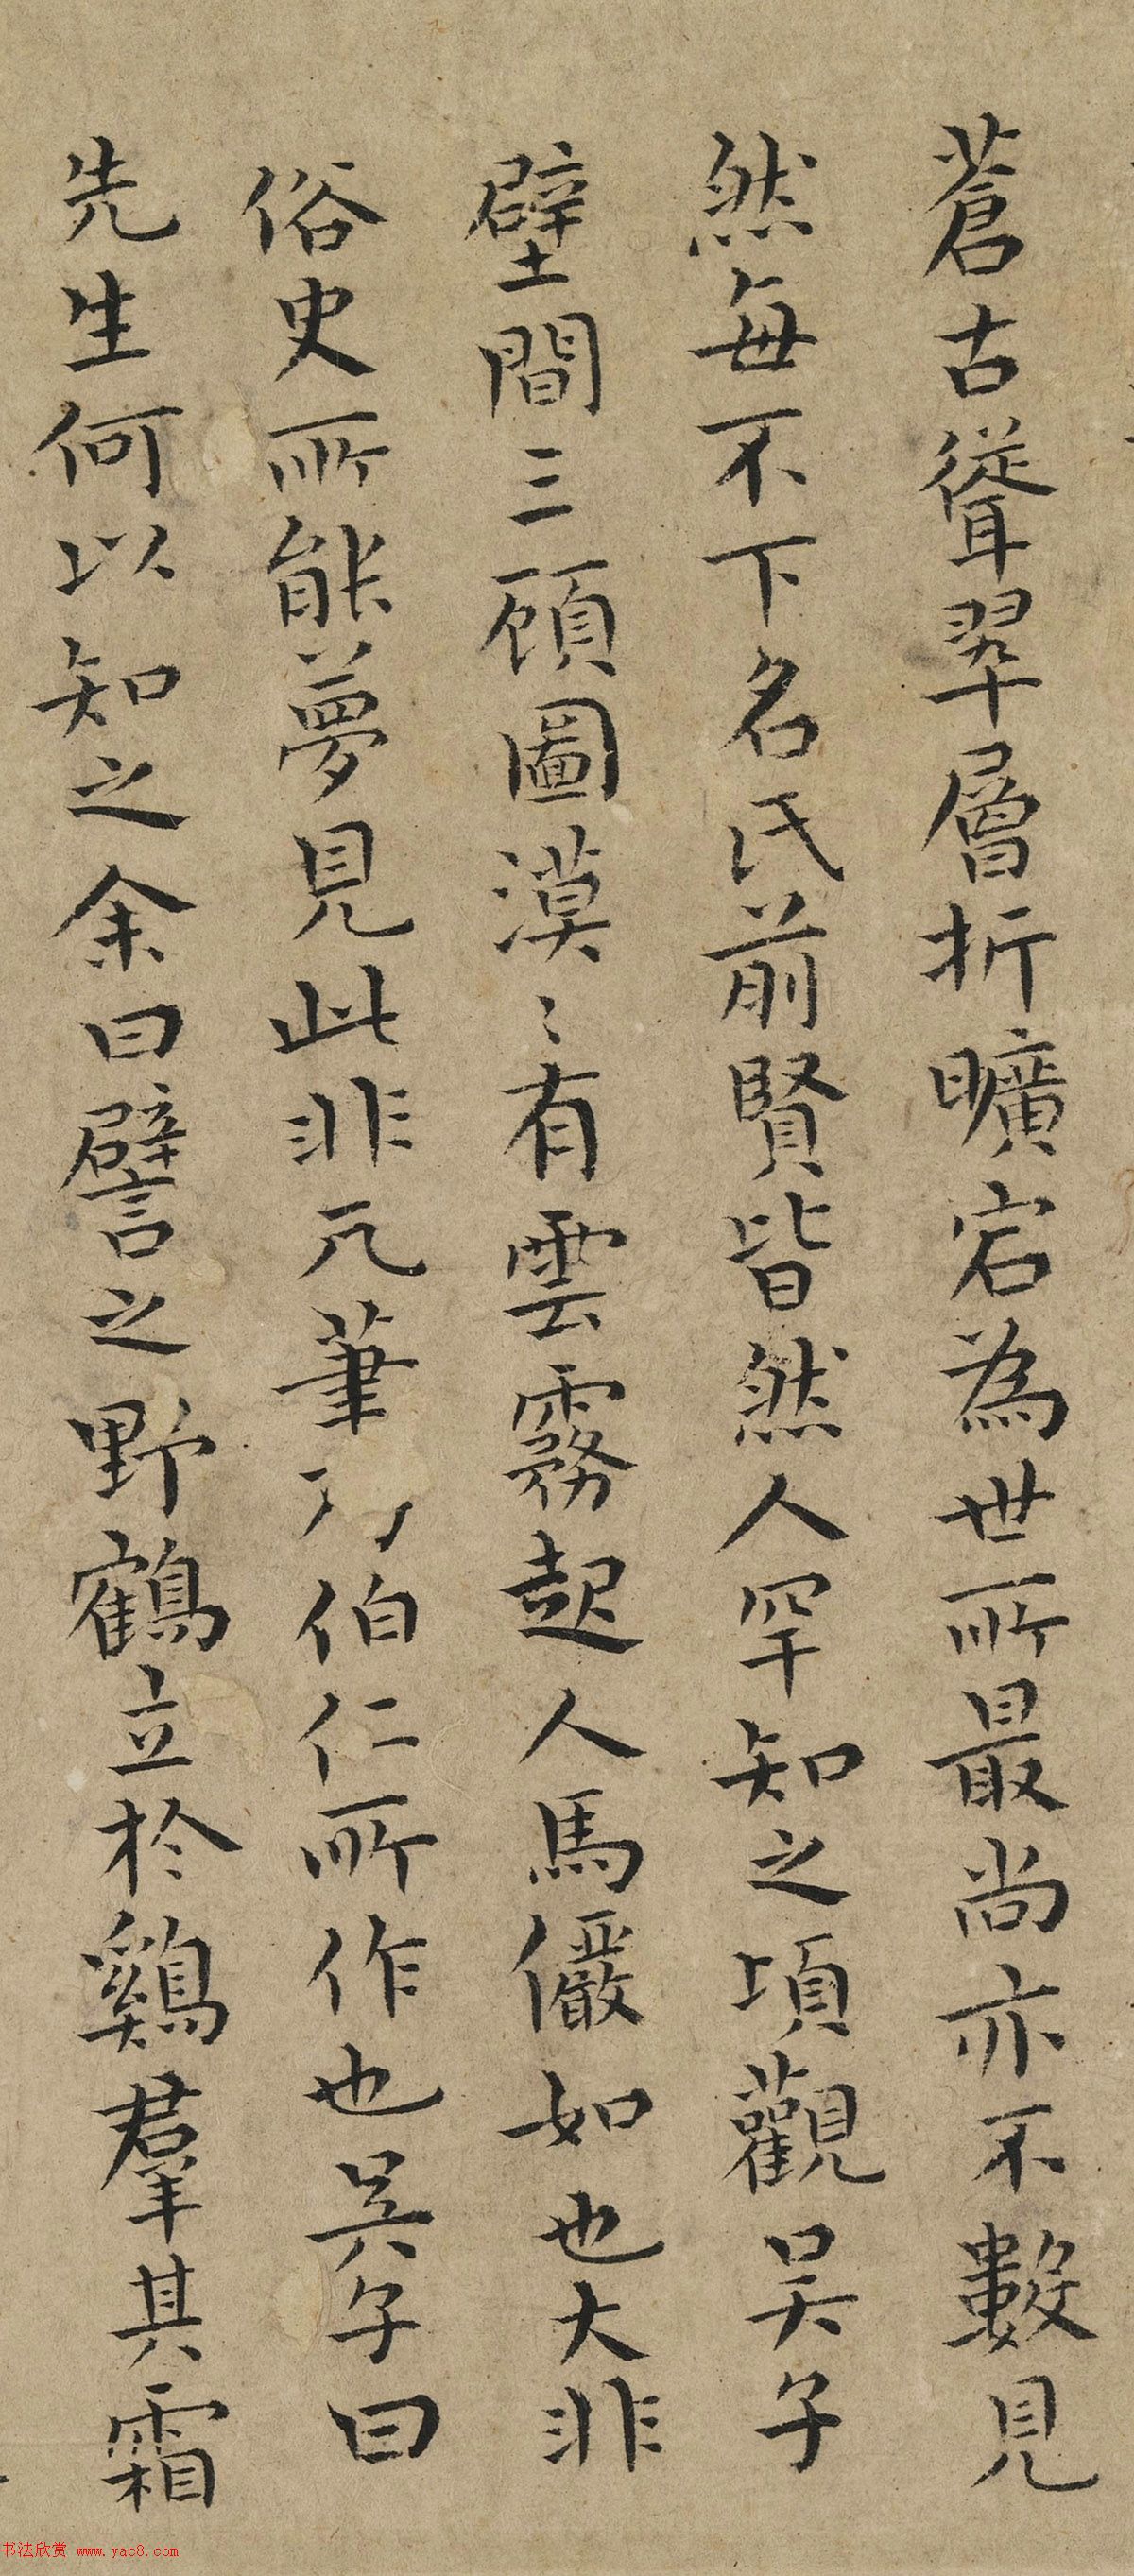 蒼古聳翠層折曠宕為世所最尚亦不數見
然每不下名氏前賢皆然人罕知之頃觀吳子
壁間三顧圖漠〻有雲霧起人馬儼如也大非
俗史所能夢見此非凡筆乃伯仁所作也吳子曰
先生何以知之余曰譬之野鶴立於鷄羣其霜
书法欣赏 www.yac8.com